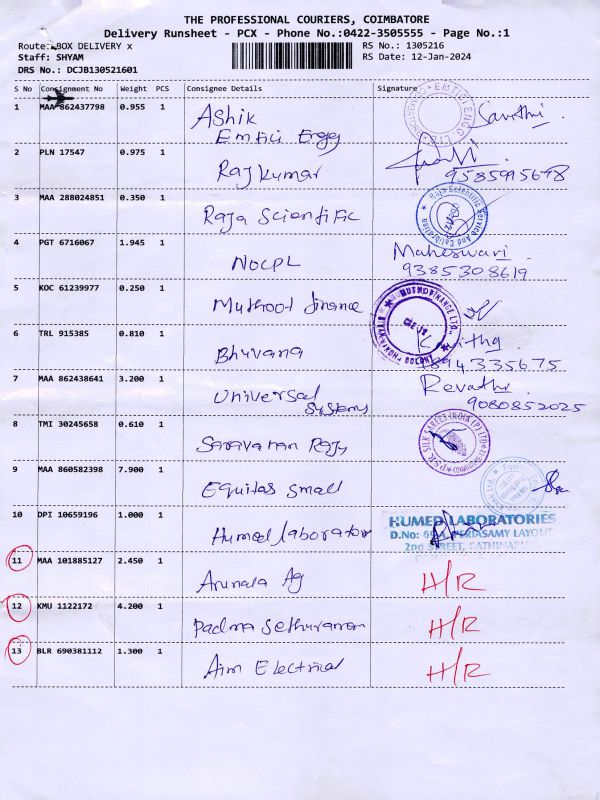 THE PROFESSIONAL COURIERS, COIMBATORE
Delivery Runsheet - PCX - Phone No.:0422-3505555 - Page No.:1
Route: BOX DELIVERY x RS No.: 1305216
Staff: SHYAM RS Date: 12-Jan-2024
DRS No.: DCJB130521601
S No Consignment No Weight PCS Consignee Details Signature
1 MAA 862437798 0.955 1 Ashik Savithi
Emfici Enggy
2 PLN 17547 0.975 1 Rajkumar 9585915678
3 MAA 288024851 0.350 1 Raja Scientific
Raja Scientific Service And Calibration
4 PGT 6716067 1.945 1 NOCPL Maheswari
9385308619
5 KOC 61239977 0.250 1 Muthoot finance
6 TRL 915385 0.810 1 Bhuvana
9894335675
7 MAA 862438641 3.200 1 Universal Systems Revathi
9080852025
8 TMI 30245658 0.610 1 Saravanan Raju
9 MAA 860582398 7.900 1 Equitas small
10 DPI 10659196 1.000 1 Humed laborator
HUMED LABORATORIES
D.No: PERIASAMY LAYOUT
2nd STREET,
11 MAA 101885127 2.450 1 Arunala Ag H/R
12 KMU 1122172 4.200 1 Padma Sethuraman H/R
13 BLR 690381112 1.300 1 Aim Electrical H/R